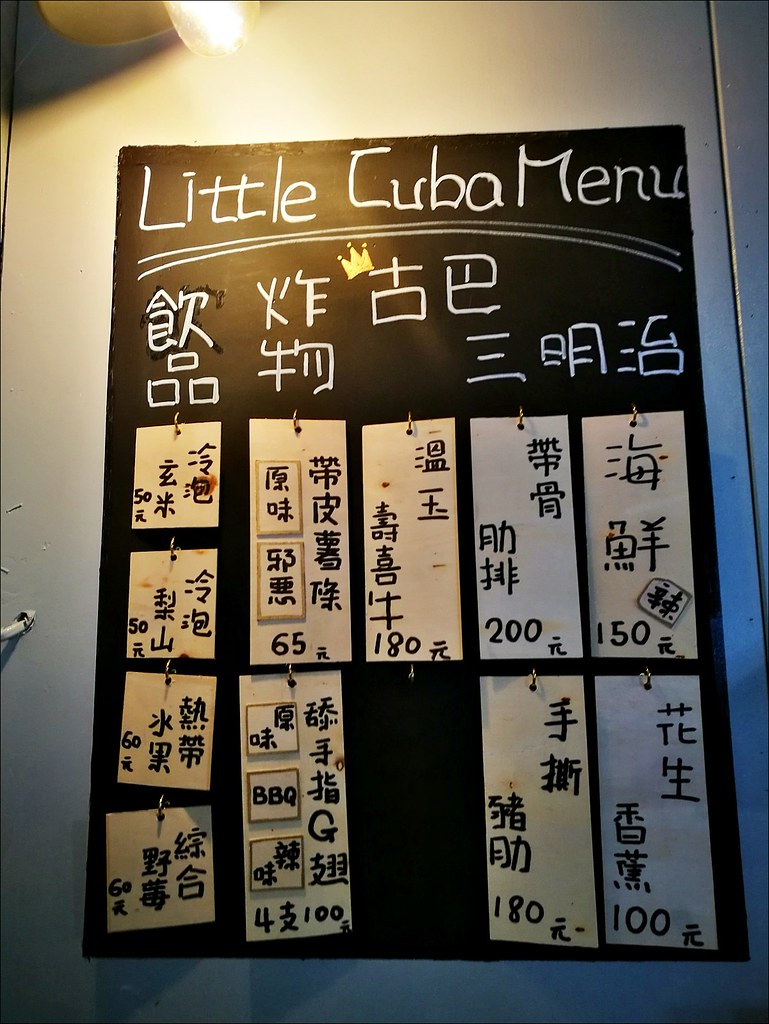 Little Cuba Menu
飲品
炸物
古巴
三明治
冷泡
玄米
50元
冷泡
梨山
50元
熱帶
冰果
60元
綜合
野莓
60元
帶皮薯條
原味
邪惡
65元
舔手指G翅
原味
BBQ
辣味
4支100元
溫玉
壽喜牛
180元
帶骨
肋排
200元
手撕
豬肋
180元
海鮮
辣
150元
花生
香蕉
100元